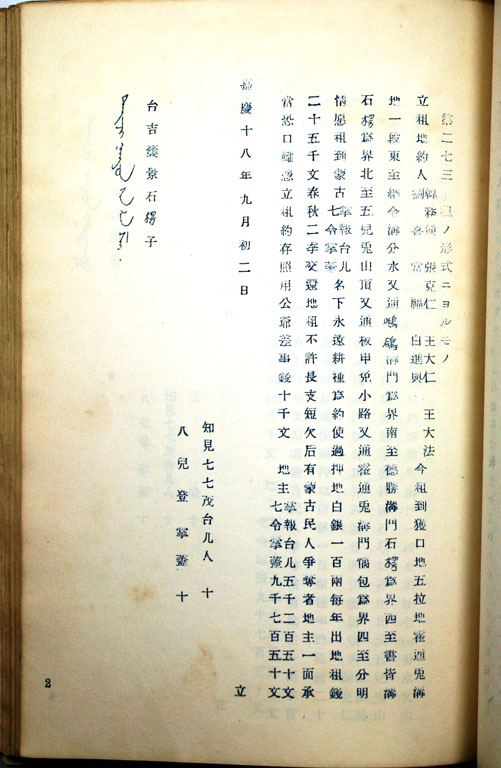 第二七三 租ノ形式ニヨルモノ
立租地約人 張克仁 王大仁 王大法今租到獲口地五拉地霍通兎溝
白進與
地一段東至 令溝分水又通 溝門為界南至德勝溝門石楞為界四至書皆溝
石楞為界北至五兒兎山頂又通板申兎小路又通霍通兎溝門惱包為界四至分明
情愿租到蒙古 掌報台儿 名下永遠耕種為約使過押地白銀一百兩每年出地租錢
七令掌蓋
二十五千文春秋二季交還地租不許長支短欠后有蒙古民人爭奪者地主一面承
當恐口難憑立租約存照用公爺差事錢十千文 地主 掌報台儿五千二百五十文
七令掌蓋九千七百五十文
嘉慶十八年九月初二日 立
知見七七茂台儿人 十
八兒登掌蓋 十
台吉 景石楞子
2